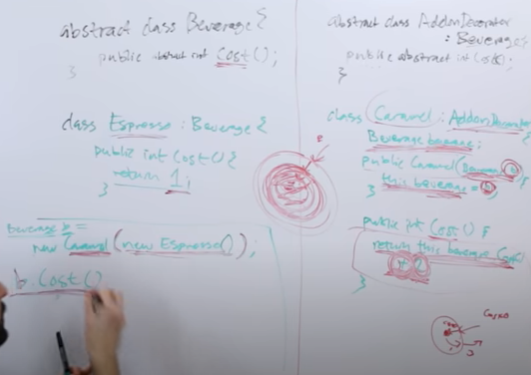 abstract class Beverage {
public abstract int Cost();
}
class Espresso : Beverage {
public int Cost() {
return 1;
}
Beverage b =
new Caramel (new Espresso());
b.Cost()
abstract class AddonDecorator
: Beverage {
public abstract int Cost();
}
class Caramel : AddonDecorator {
Beverage beverage;
public Caramel(Beverage b) {
this.beverage = b;
}
public int Cost() {
return this.beverage.Cost()
+ 2;
}